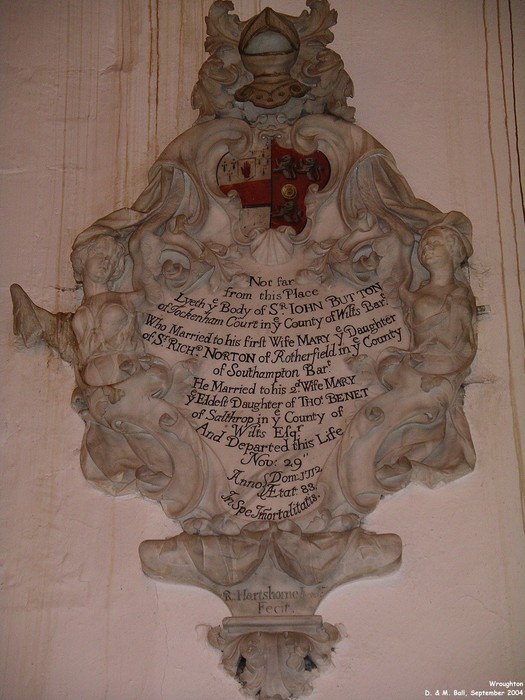 Not far
from this Place
Lyeth yͤ Body of Sͬ IOHN BUTTON
of Tockenham Court in yͤ County of Wilts Barͭ
Who Married to his first Wife MARY yͤ Daughter
of Sͬ RICHͩ NORTON of Rotherfield in yͤ County
of Southampton Barͭ
He Married to his 2ͩ Wife MARY
yͤ Eldest Daughter of THOˢ BENET
of Salthrop in yͤ County of
Wilts Esqͬ
And Departed this Life
Nov: 29ᵗʰ
Anno Dom: 1712
Ætat: 83.
In Spe Imortalitatis.
R Hartshorne
Fecit.
Wroughton
D. & M. Ball, September 2004